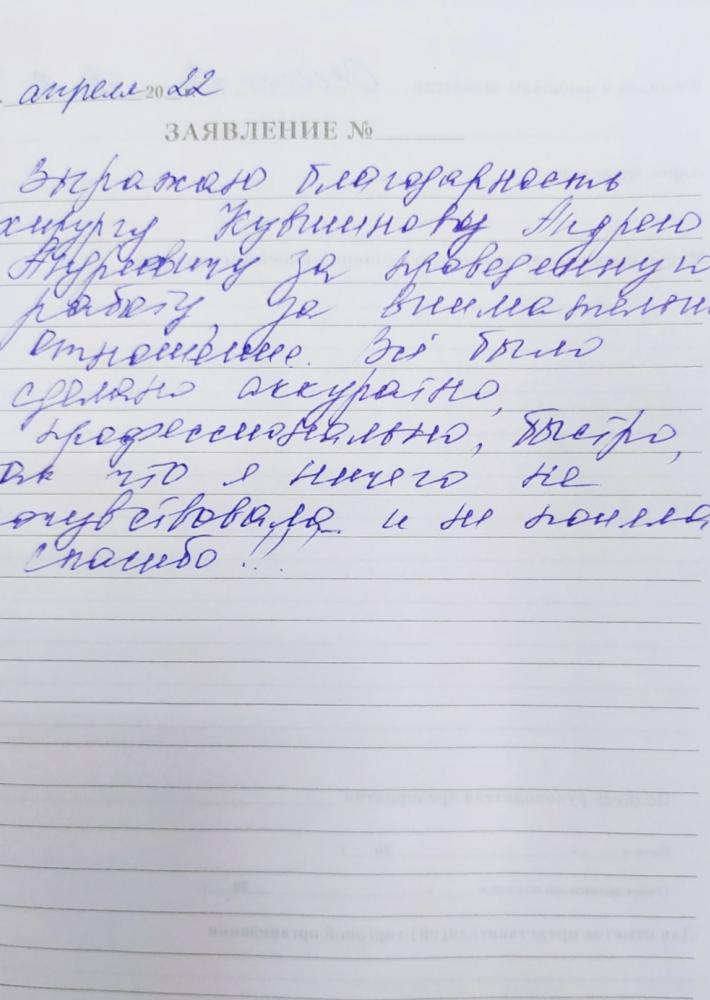 апреля 2022
ЗАЯВЛЕНИЕ №
Выражаю благодарность
хирургу Кувшинову Андрею
Андреевичу за проведенную
работу, за внимательн
отношение. Всё было
сделано аккуратно,
профессионально, быстро,
ак что я ничего не
очувствовала и не поняла
спасибо!!!